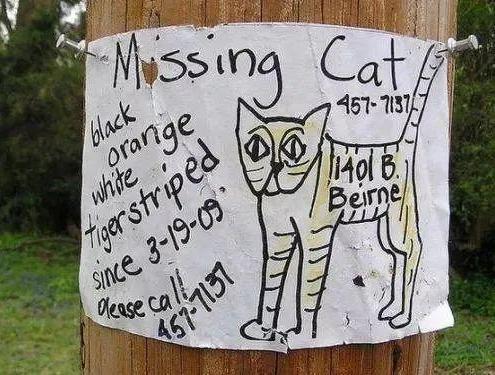 Missing Cat
457-7137
black
orange
white
tiger striped
since 3-19-09
Please call
457-7137
1401 B.
Beirne